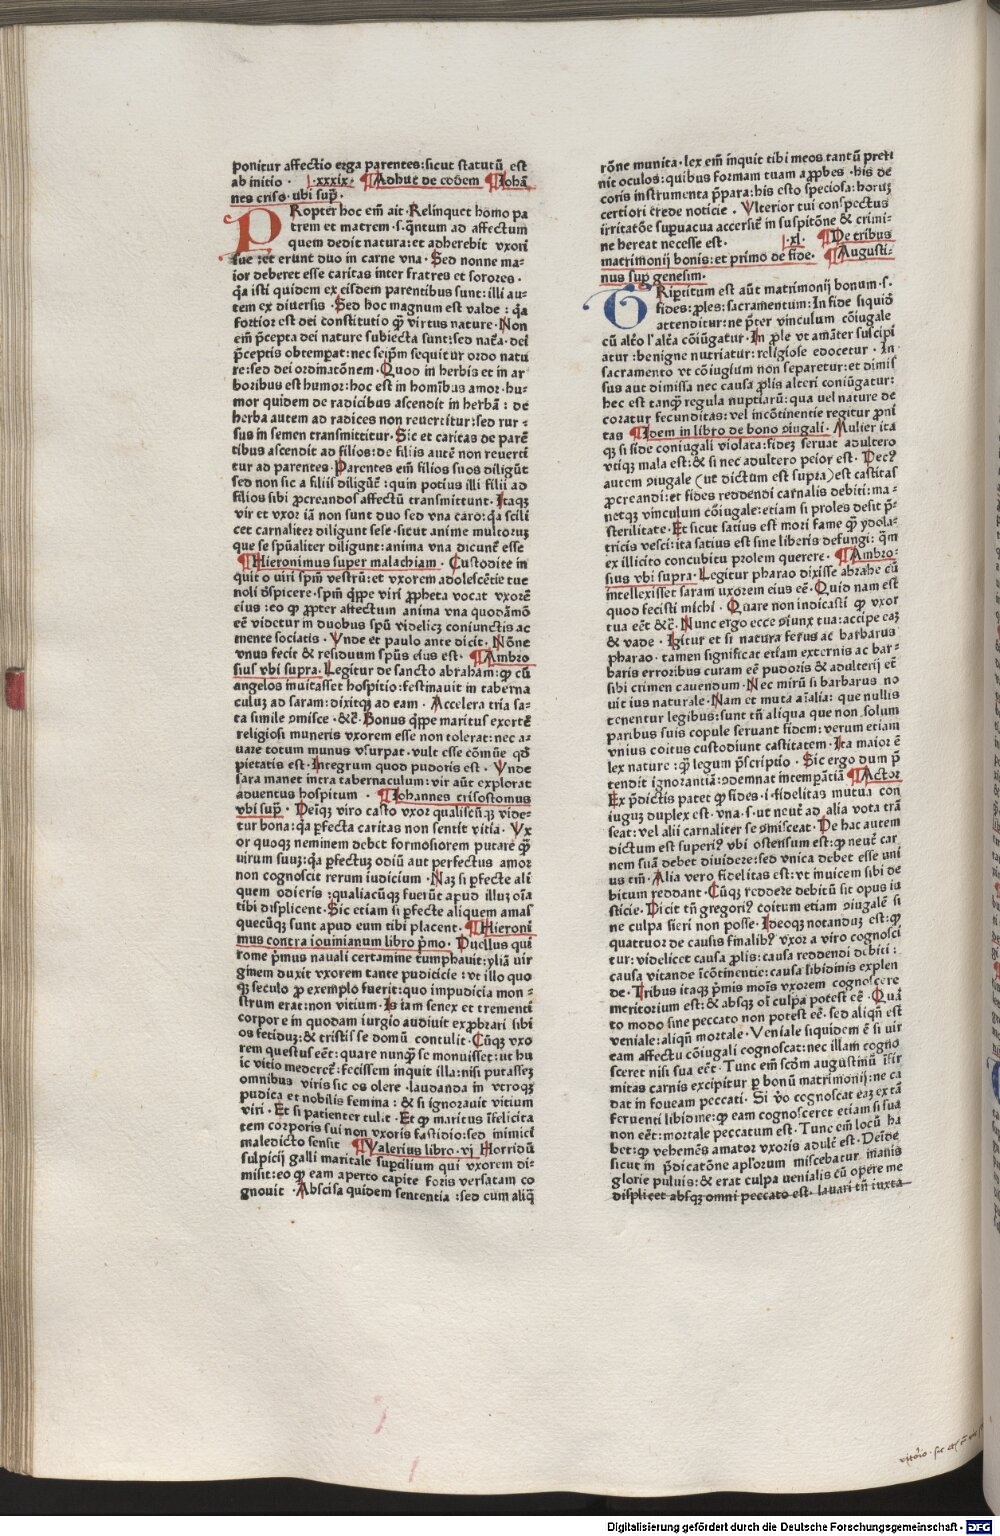 ponitur affectio erga parentes:sicut statutū est
ab initio · ·xxxix· ¶Adhuc de eodem ¶Johā
nes criso· ubi sup̄·
PRopter hoc em̄ ait·Relinquet homo pa
trem et matrem·s·q̄ntum ad affectum
quem dedit natura:et adherebit vxori
sue:et erunt duo in carne vna·Sed nonne ma-
ior deberet esse caritas inter fratres et sorores·
q̄a isti quidem ex eisdem parentibus sunt:illi au-
tem ex diuersis·Sed hoc magnum est valde:q̄a
fortior est dei constitutio q̄ virtus nature·Non
em̄ p̄cepta dei nature subiecta sunt:sed nat̄a·dei
p̄ceptis obtemp̄at:nec seip̄m sequitur ordo natu
re:sed dei ordinatōnem·Quod in herbis et in ar
boribus est humor:hoc est in homībus amor·hu-
mor quidem de radicibus ascendit in herbā:de
herba autem ad radices non reuertitur:sed rur-
sus in semen transmittitur·Sic et caritas de parē
tibus ascendit ad filios:de filiis autē non reuerti
tur ad parentes·Parentes em̄ filios suos diligūt
sed non sic a filiis diligūt̄:quin potius illi filii ad
filios sibi ꝓcreandos affectū transmittunt·Itaqꝫ
vir et vxor iā non sunt duo sed vna caro:q̄a scili
cet carnaliter diligunt sese·sicut anime multoruꝫ
que se spūaliter diligunt:anima vna dicunt̄ esse
¶Hieronimus super malachiam·Custodite in
quit o viri spm̄ vestrū:et vxorem adolescētie tue
noli ꝺspicere·spm̄ q̄ppe viri ꝓpheta vocat vxorē
eius:eo ꝙ ꝓpter affectum anima vna quodāmō
eē videtur in duobus spū videlicꝫ coniunctis ac
mente sociatis·Vnde et paulo ante dicit·Nōne
vnus fecit & residuum spūs eius est· ¶Ambro
sius vbi supra·Legitur de sancto abraham:ꝙ cū
angelos inuitasset hospitio:festinauit in taberna
culuꝫ ad saram:dixitqꝫ ad eam·Accelera tria sa-
ta simile ꝯmisce·&c̄·Bonus q̄ppe maritus exortē
religiosi muneris vxorem esse non tolerat:nec a-
uare totum munus vsurpat·vult esse cōmūe qđ
pietatis est·Integrum quod pudoris est·Vnde
sara manet intra tabernaculum:vir aūt explorat
aduentus hospitum · ¶Johannes crisostomus
vbi sup̄·Deīqꝫ viro casto vxor qualiscū·qꝫ vide-
tur bona:q̄a p̄fecta caritas non sentit vitia·Vx
or quoqꝫ neminem debet formosiorem putare q̄
virum suuꝫ:q̄a p̄fectuꝫ odiū aut perfectus amor
non cognoscit rerum iudicium·Naꝫ si p̄fecte ali
quem odieris:qualiacūqꝫ fuerūt apud illuꝫ oīa
tibi displicent·Sic etiam si p̄fecte aliquem amas
quecūqꝫ sunt apud eum tibi placent·¶Hieroni
mus contra iouinianum libro p̄mo·Duellus qui
rome p̄mus nauali certamine tumphauit:yliā vir
ginem duxit vxorem tante pudicicie:vt illo quo
qꝫ seculo ꝓ exemplo fuerit:quo impudicia mon-
strum erat:non vitium·Is iam senex et trementi
corpore in quodam iurgio audiuit exꝓbrari sibi
os fetiduꝫ:& tristis se domū contulit·Cūqꝫ vxo
rem questus eēt:quare nunqꝫ se monuisset:ut hu
ic vitio mederet̄:fecissem inquit illa:nisi putasseꝫ
omnibus viris sic os olere·laudanda in vtroqꝫ
pudica et nobilis femina:& si ignorauit vitium
viri·Et si patienter tulit·Et ꝙ maritus īfelicita
tem corporis sui non vxoris fastidio:sed inimici
maledicto sensit ¶Valerius libro·vj Horridū
sulpicij galli maritale sup̄cilium qui vxorem di-
misit:eo ꝙ eam aperto capite foris versatam co
gnouit·Abscisa quidem sententia:sed cum aliq̄
rōne munita·lex em̄ inquit tibi meos tantū prefi
nit oculos:quibus formam tuam aꝓbes·his de
coris instrumenta p̄para:his esto speciosa:horuꝫ
certiori crede noticie·Vlterior tui conspectus
irritatōe supuacua accersit̄ in suspitōne & crimi-
ne hereat necesse est· ·xl· ¶De tribus
matrimonij bonis:et primo de fide·¶Augusti-
nus sup̄ genesim·
TRipertitum est aūt matrimonij bonum·s·
fides:ꝓles:sacramentum:In fide siquidē
attenditur:ne p̄ter vinculum cōiugale
cū altēo l'altēa cōiūgatur·In ꝓle vt amāter suscipi
atur:benigne nutriatur:religiose edocetur·In
sacramento vt cōiugium non separetur:et dimis
sus aut dimissa nec causa ꝓlis alteri coniūgatur:
hec est tanqꝫ regula nuptiarū:qua uel nature de
coratur fecunditas:vel incōtinentie regitur ꝓui
tas ¶Idem in libro de bono ꝯiugali·Mulier ita
qꝫ si fide coniugali violata:fideꝫ seruat adultero
vtiqꝫ mala est:& si nec adultero peior est·Decꝰ
autem ꝯiugale (ut dictum est supra) est castitas
ꝓcreandi:et fides reddendi carnalis debiti:ma-
netqꝫ vinculum cōiugale:etiam si proles desit p̄-
sterilitate·Et sicut satius est mori fame q̄ ydola-
tricis vesci:ita satius est sine liberis defungi:q̄m
ex illicito concubitu prolem querere·¶Ambro-
sius vbi supra·Legitur pharao dixisse abrahe cū
intellexisset saram uxorem eius eē·Quid nam est
quod fecisti michi·Quare non indicasti ꝙ vxor
tua eēt &c̄·Nunc ergo ecce ꝯiunx tua:accipe eaꝫ
& vade·Igitur et si natura ferus ac barbarus
pharao·tamen significat etiam externis ac bar-
baris erroribus curam eē pudoris & adulterij eē
sibi crimen cauendum·Nec mirū si barbarus no
uit ius naturale·Nam et muta aīalia:que nullis
tenentur legibus:sunt tn̄ aliqua que non solum
paribus suis copule seruant fidem:verum etiam
vnius coitus custodiunt castitatem·Ita maior ē
lex nature:q̄ legum p̄scriptio·Sic ergo dum p̄
tendit ignorantiā:ꝯdemnat intempātiā ¶Actor
Ex p̄dictis patet ꝙ fides·i·fidelitas mutua con
iuguꝫ duplex est·vna·s·ut neut̄ ad alia vota trā
seat:vel alii carnaliter se ꝯmisceat·De hac autem
dictum est superiꝰ vbi ostensum est:ꝙ neut̄ car
nem suā debet diuidere:sed vnica debet esse uni
us tm̄·Alia vero fidelitas est:vt inuicem sibi de
bitum reddant·Cūqꝫ reddere debitū sit opus iu
sticie·Dicit tn̄ gregoriꝰ coitum etiam ꝯiugalē si
ne culpa fieri non posse·Ideoqꝫ notanduꝫ est:ꝙ
quattuor de causis finalibꝰ vxor a viro cognosci
tur:videlicet causa ꝓlis:causa reddendi debiti:
causa vitande īcōtinentie:causa libidinis explen
de·Tribus itaqꝫ p̄mis mois vxorem cognoscere
meritorium est:& absqꝫ oī culpa potest eē·Quar̄
to modo sine peccato non potest eē·sed aliqn̄ est
veniale:aliqn̄ mortale·Veniale siquidem ē si uir
eam affectu cōiugali cognoscat:nec illam cogno
sceret nisi sua eēt·Tunc em̄ scd̄m augustinū īfir
mitas carnis excipitur p̄ bonū matrimonij:ne ca
dat in foueam peccati·Si v̄o cognoscat eaꝫ ex tā
feruenti libidine:ꝙ eam cognosceret etiam si sua
non eēt:mortale peccatum est·Tunc em̄ locū ha
bet:ꝙ vehemēs amator vxoris adult̄ est·Deīde
sicut in p̄dicatōne apl'orum miscebatur inanis
glorie puluis:& erat culpa uenialis cū opere me
displicet absqꝫ omni peccato est·lauari tn̄ iuxta
Digitalisierung gefördert durch die Deutsche Forschungsgemeinschaft - DFG